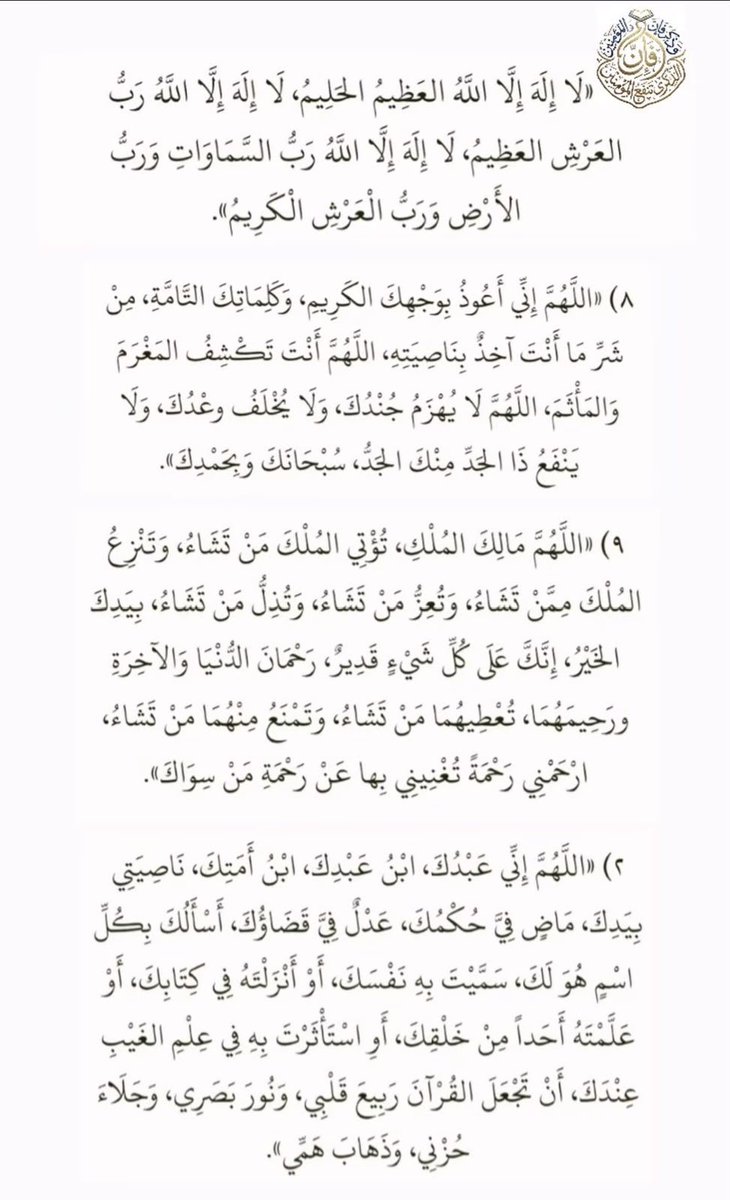 وَذَكِّرْ فَإِنَّ الذِّكْرَى تَنفَعُ المُؤْمِنِينَ
«لَا إِلَهَ إِلَّا اللَّهُ العَظِيمُ الحَلِيمُ، لَا إِلَهَ إِلَّا اللَّهُ رَبُّ
العَرْشِ العَظِيمُ، لَا إِلَهَ إِلَّا اللَّهُ رَبُّ السَّمَاوَاتِ وَرَبُّ
الأَرْضِ وَرَبُّ الْعَرْشِ الْكَرِيمُ».
٨) «اللَّهُمَّ إِنِّي أَعُوذُ بِوَجْهِكَ الكَرِيمِ، وَكَلِمَاتِكَ التَّامَّةِ، مِنْ
شَرِّ مَا أَنْتَ آخِذٌ بِنَاصِيَتِهِ، اللَّهُمَّ أَنْتَ تَكْشِفُ المَغْرَمَ
وَالمَأْثَمَ، اللَّهُمَّ لَا يُهْزَمُ جُنْدُكَ، وَلَا يُخْلَفُ وعْدُكَ، وَلَا
يَنْفَعُ ذَا الجَدِّ مِنْكَ الجَدُّ، سُبْحَانَكَ وَبِحَمْدِكَ».
٩) «اللَّهُمَّ مَالِكَ المُلْكِ، تُؤْتِي المُلْكَ مَنْ تَشَاءُ، وَتَنْزِعُ
المُلْكَ مِمَّنْ تَشَاءُ، وَتُعِزُّ مَنْ تَشَاءُ، وَتُذِلُّ مَنْ تَشَاءُ، بِيَدِكَ
الخَيْرُ، إِنَّكَ عَلَى كُلِّ شَيْءٍ قَدِيرٌ، رَحْمَانَ الدُّنْيَا وَالآخِرَةِ
ورَحِيمَهُمَا، تُعْطِيهُمَا مَنْ تَشَاءُ، وَتَمْنَعُ مِنْهُمَا مَنْ تَشَاءُ،
ارْحَمْنِي رَحْمَةً تُغْنِينِي بِها عَنْ رَحْمَةِ مَنْ سِوَاكَ».
٢) «اللَّهُمَّ إِنِّي عَبْدُكَ، ابْنُ عَبْدِكَ، ابْنُ أَمَتِكَ، نَاصِيَتِي
بِيَدِكَ، مَاضٍ فِيَّ حُكْمُكَ، عَدْلٌ فِيَّ قَضَاؤُكَ، أَسْأَلُكَ بِكُلِّ
اسْمٍ هُوَ لَكَ، سَمَّيْتَ بِهِ نَفْسَكَ، أَوْ أَنْزَلْتَهُ فِي كِتَابِكَ، أَوْ
عَلَّمْتَهُ أَحَداً مِنْ خَلْقِكَ، أَوِ اسْتَأْثَرْتَ بِهِ فِي عِلْمِ الغَيْبِ
عِنْدَكَ، أَنْ تَجْعَلَ القُرْآنَ رَبِيعَ قَلْبِي، وَنُورَ بَصَرِي، وَجَلَاءَ
حُزْنِي، وَذَهَابَ هَمِّي».